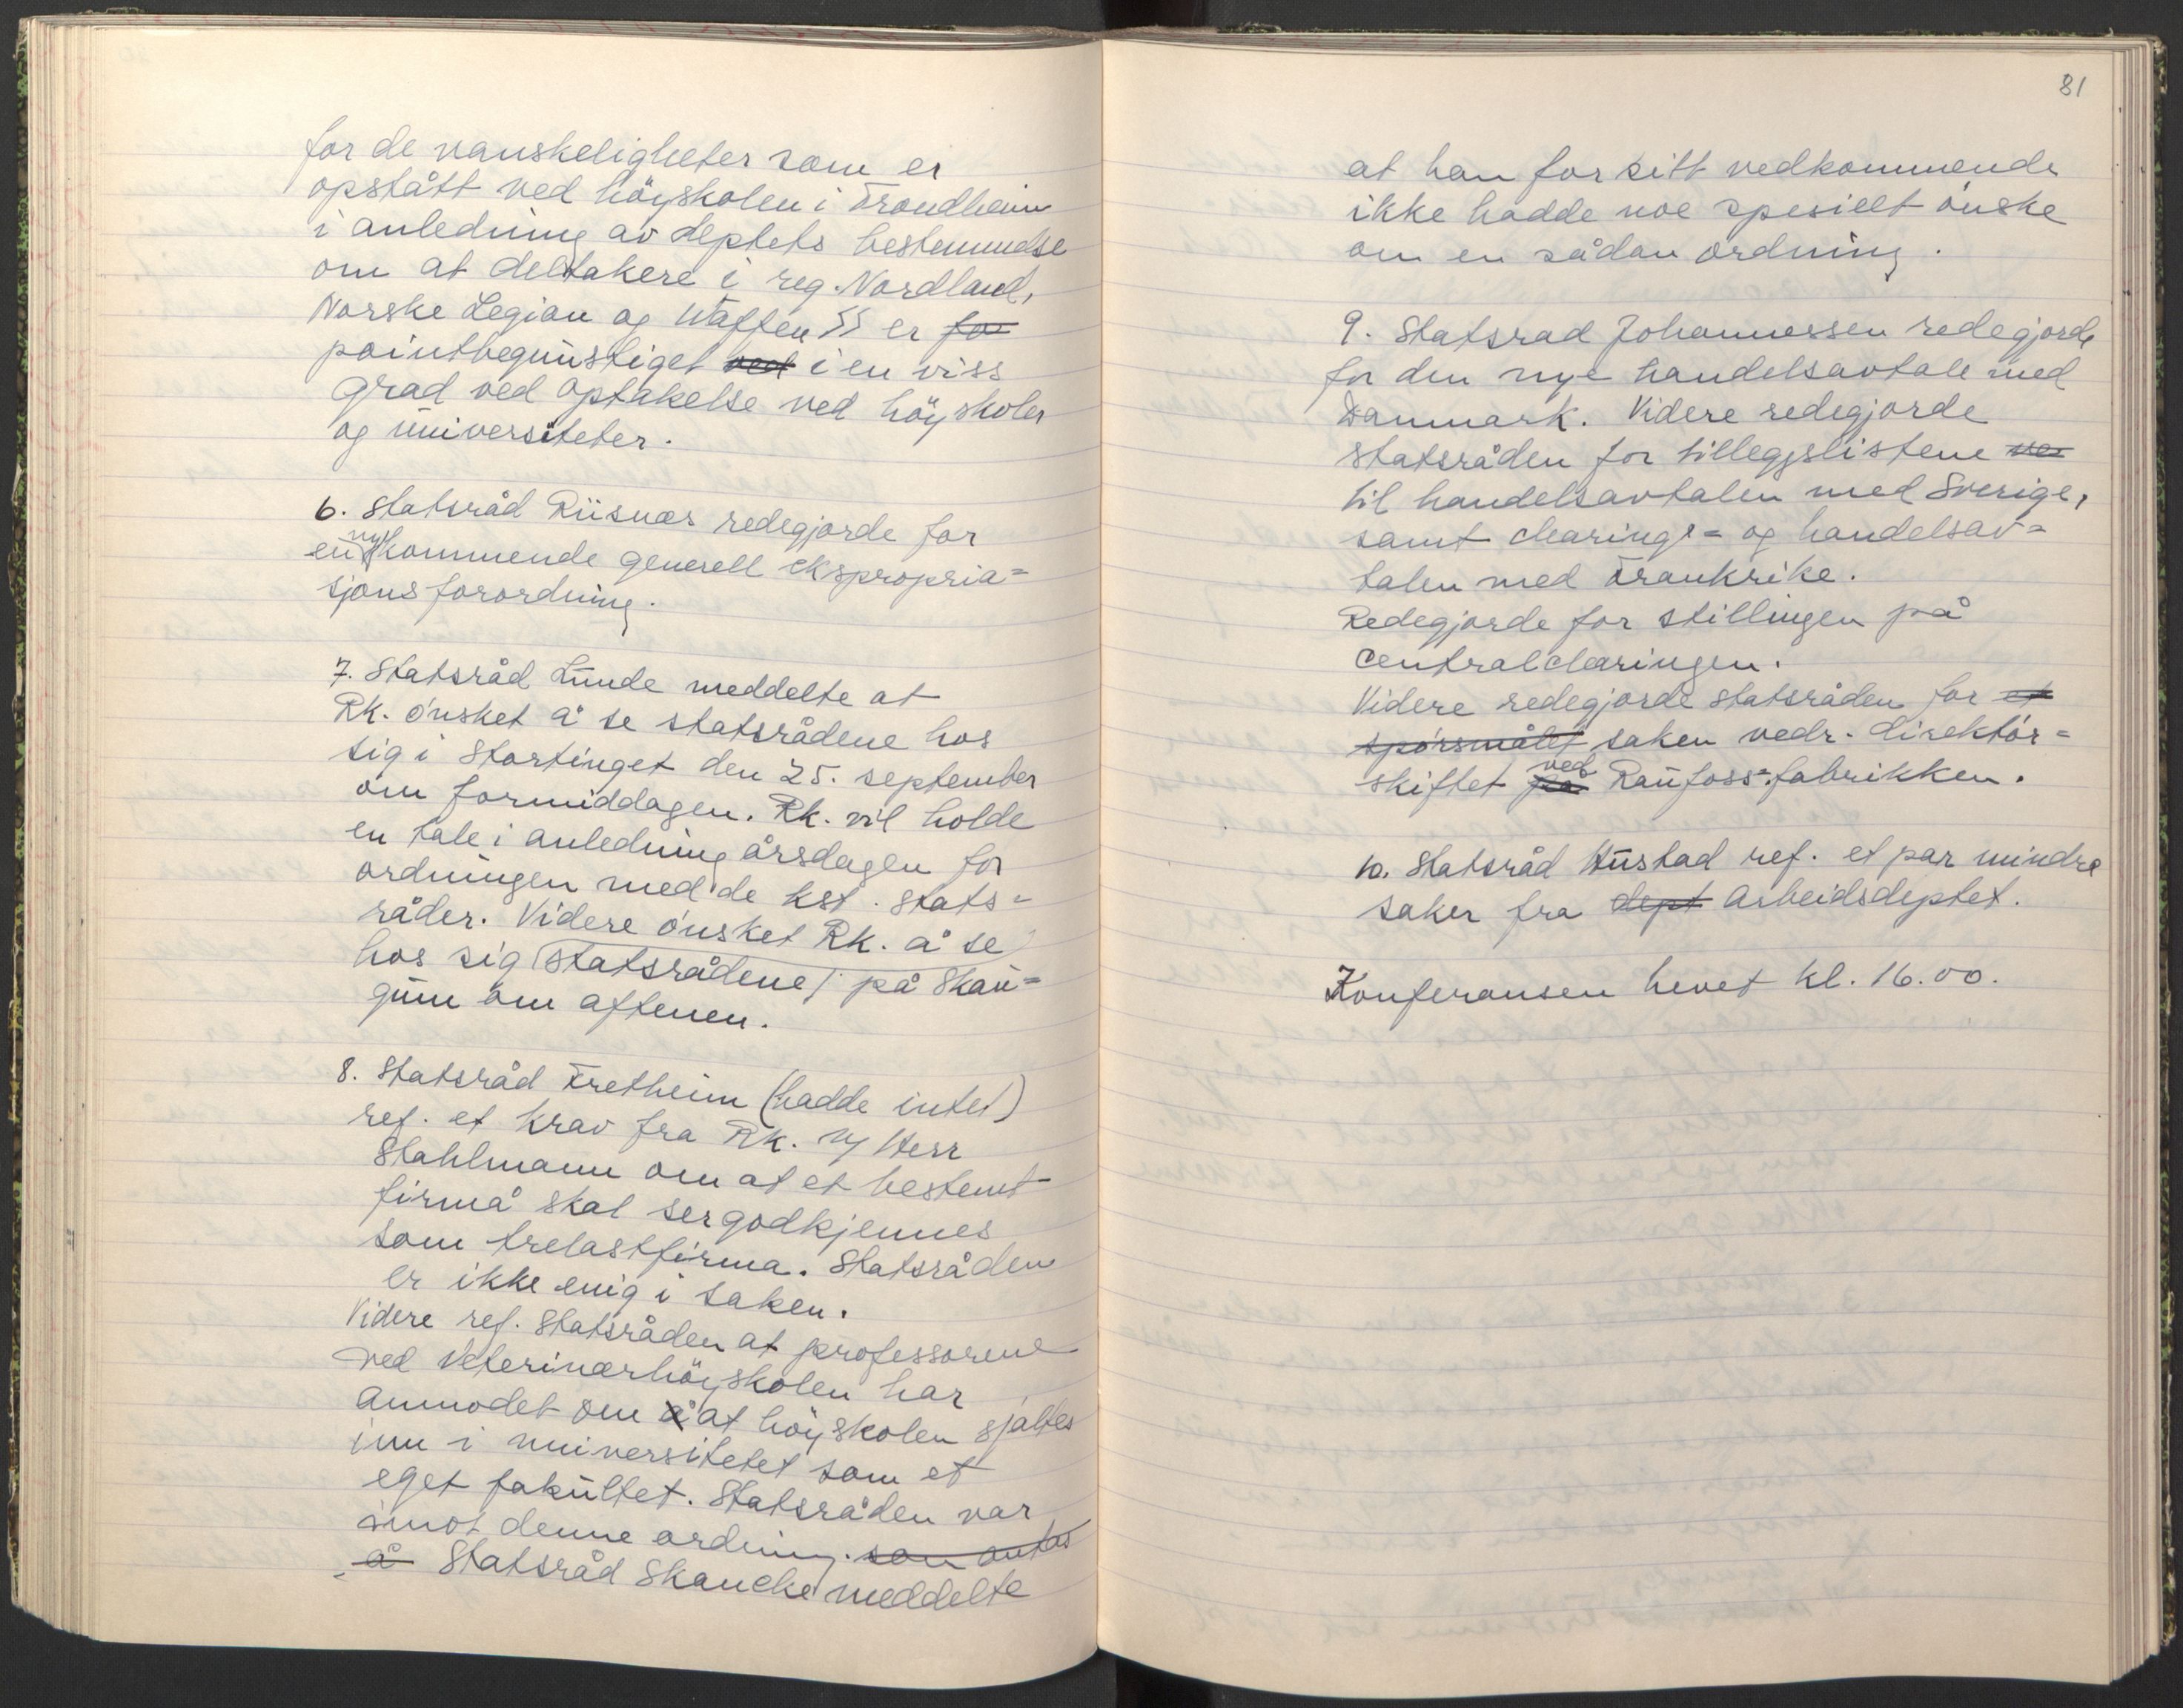 for de vanskeligheter som er
opstått ved höyskolen i Trondheim
i anledning av deptets bestemmelse
om at deltakere i reg. Nordland,
Norske Legion og Waffen SS er for
pointbegunstiget ved i en viss
grad ved optakelse ved höyskoler
og universiteter.
6. Statsråd Riisnæs redegjorde for
en ny kommende generell ekspropria=
sjonsforordning.
7. Statsråd Lunde meddelte at
Rk. ønsket å se statsrådene hos
sig i Stortinget den 25. september
om formiddagen. Rk. vil holde
en tale i anledning årsdagen for
ordningen med de kst. stats=
råder. Videre ønsket Rk. å se
hos sig statsrådene på Skau=
gum om aftenen.
8. Statsråd Fretheim (hadde intet)
ref. et krav fra Rk. v/ Herr
Stahlmann om at et bestemt
firma skal sergodkjennes
som trelastfirma. Statsråden
er ikke enig i saken.
Videre ref. Statsråden at professorene
ved Veterinærhöyskolen har
anmodet om å at höyskolen sjaltes
inn i universitetet som et
eget fakultet. Statsråden var
imot denne ordning. som antas
å Statsråd Skancke meddelte
81
at han for sitt vedkommende
ikke hadde noe spesielt ønske
om en sådan ordning.
9. Statsrad Johannessen redegjorde
for den nye handelsavtale med
Danmark. Videre redegjorde
statsråden for tilleggslistene ve
til handelsavtalen med Sverige,
samt clearings= og handelsav=
talen med Frankrike.
Redegjorde for stillingen på
Centralclearingen.
Videre redegjorde statsråden for et
spørsmålet saken vedr. direktør=
skiftet på ved Raufoss=fabrikken.
10. Statsråd Hustad ref. et par mindre
saker fra dept Arbeidsdeptet.
Konferansen hevet kl. 16.00.